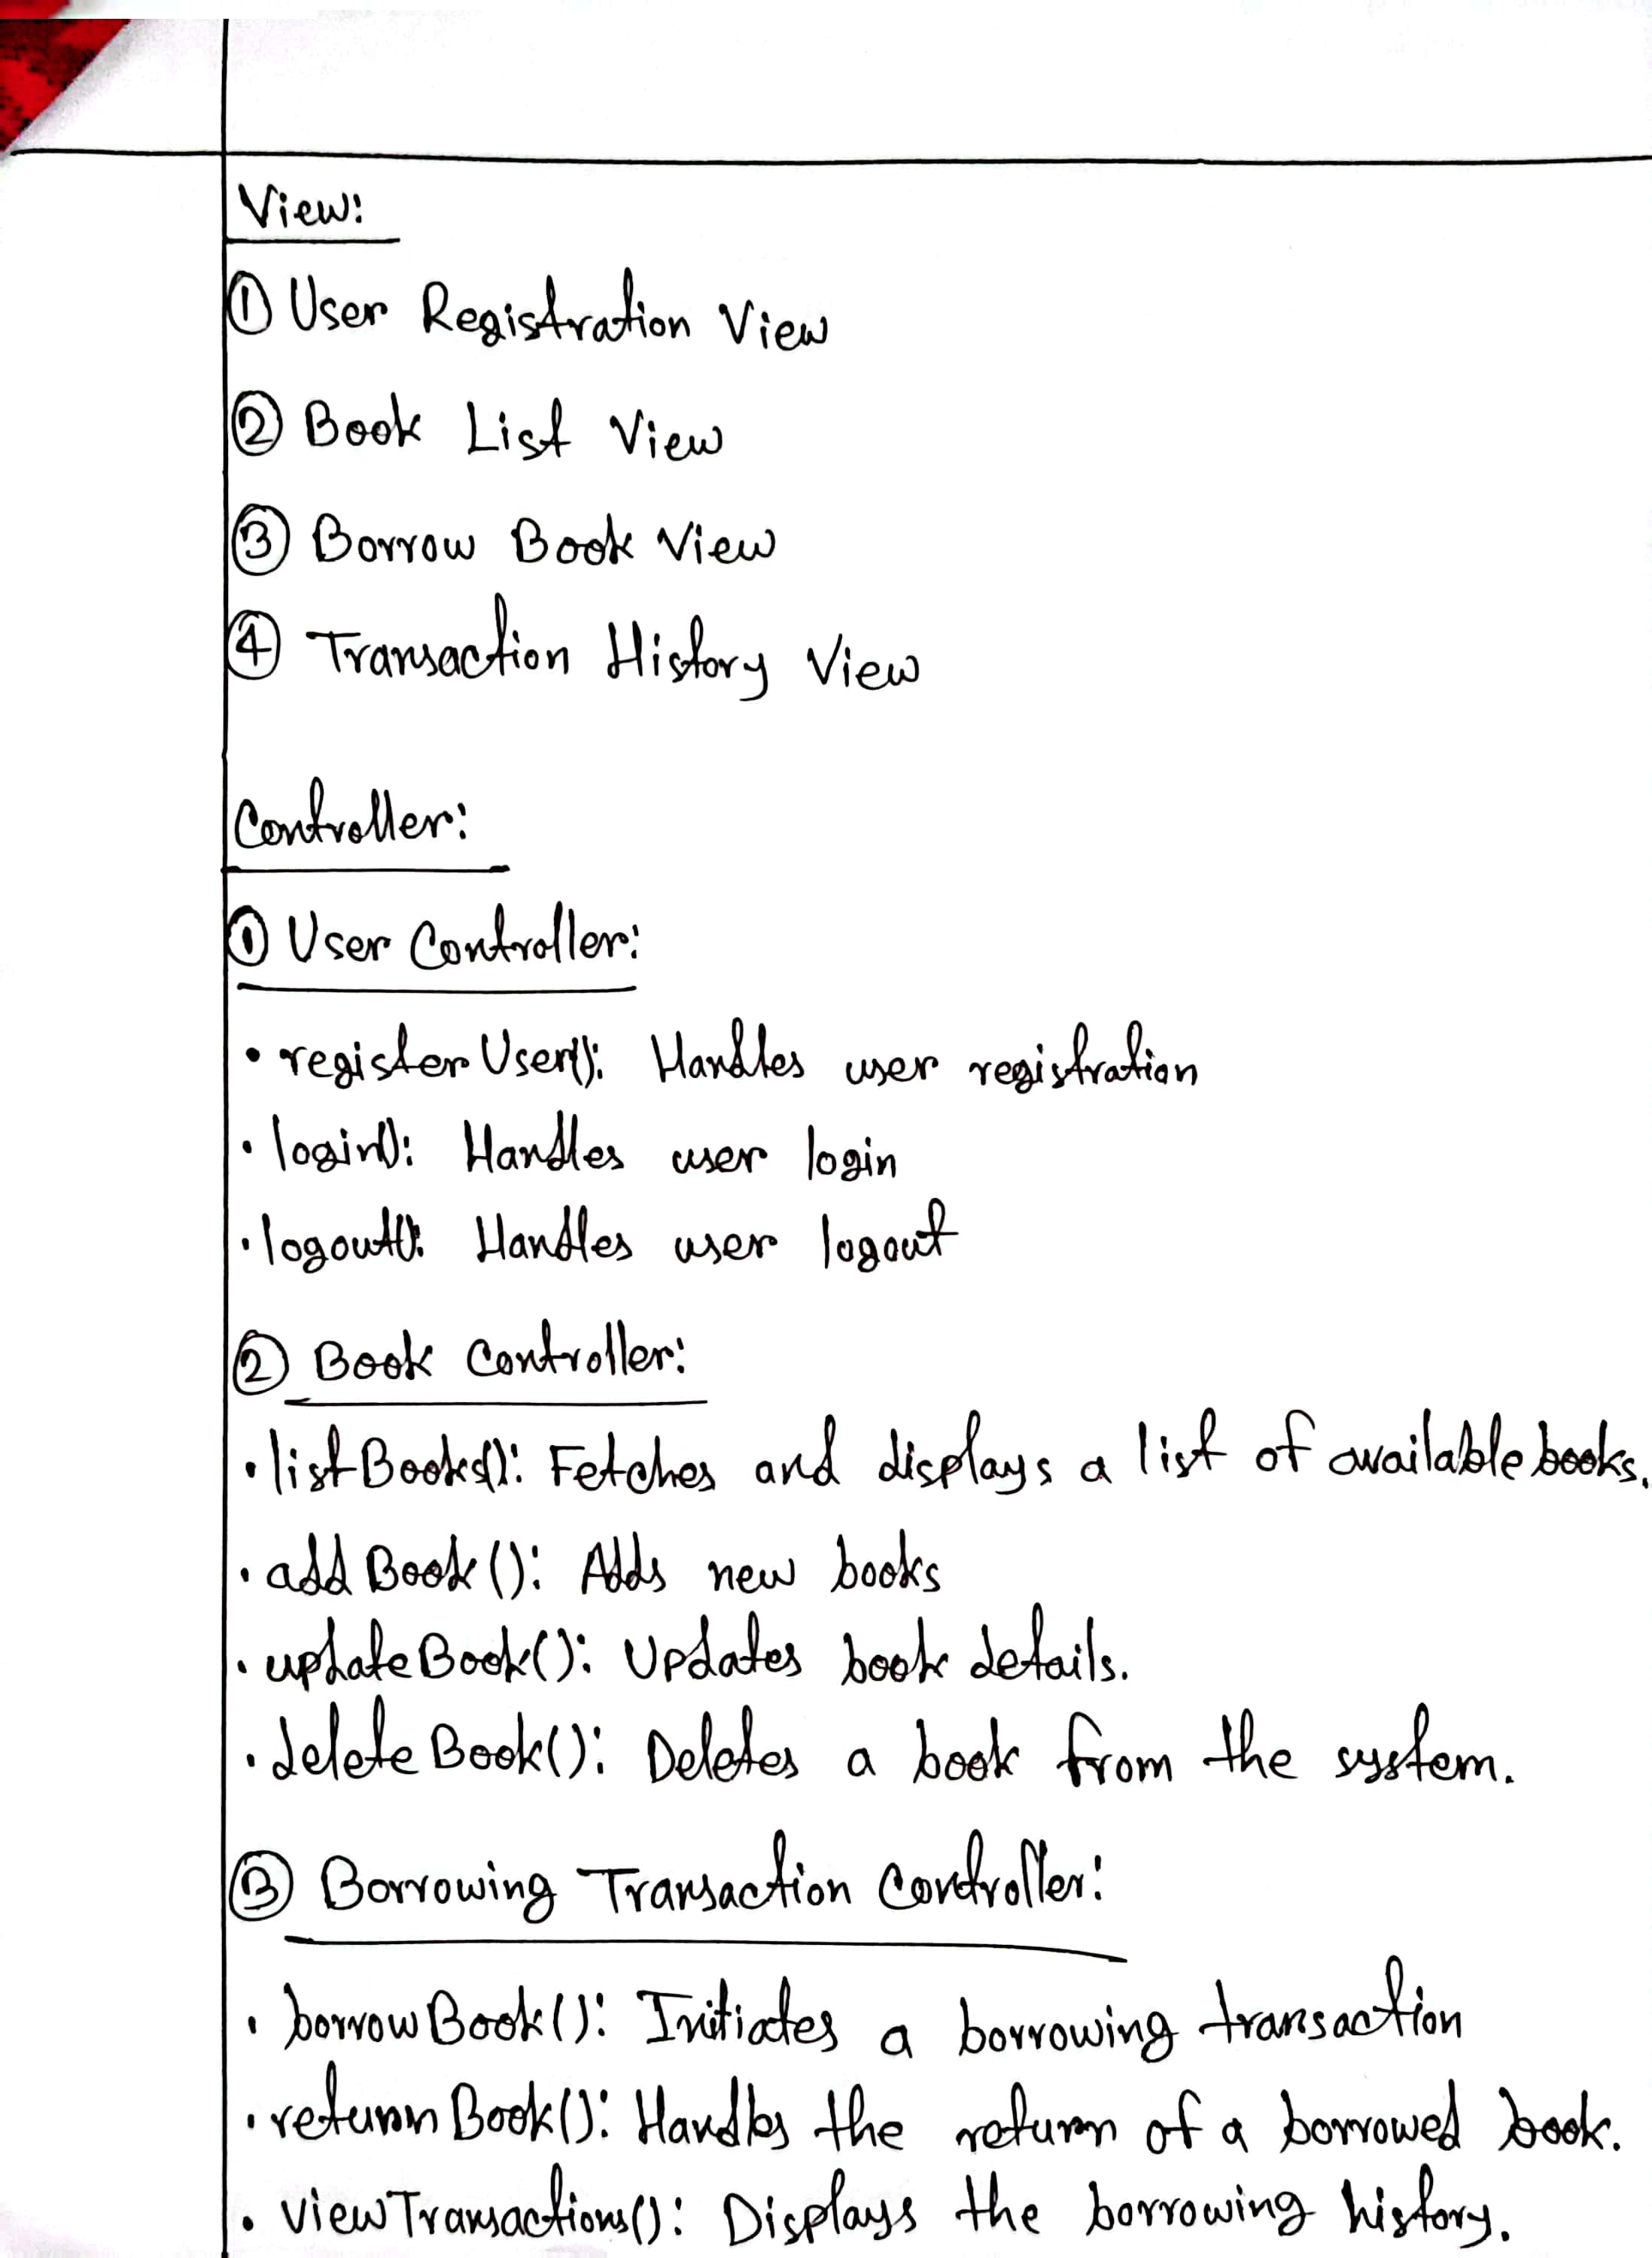 View:
① User Registration View
② Book List View
③ Borrow Book View
④ Transaction History View
Controller:
① User Controller:
• registerUser(): Handles user registration
• login(): Handles user login
• logout(): Handles user logout
② Book Controller:
• listBooks(): Fetches and displays a list of available books.
• addBook(): Adds new books
• updateBook(): Updates book details.
• deleteBook(): Deletes a book from the system.
③ Borrowing Transaction Controller:
• borrowBook(): Initiates a borrowing transaction
• returnBook(): Handles the return of a borrowed book.
• viewTransactions(): Displays the borrowing history.